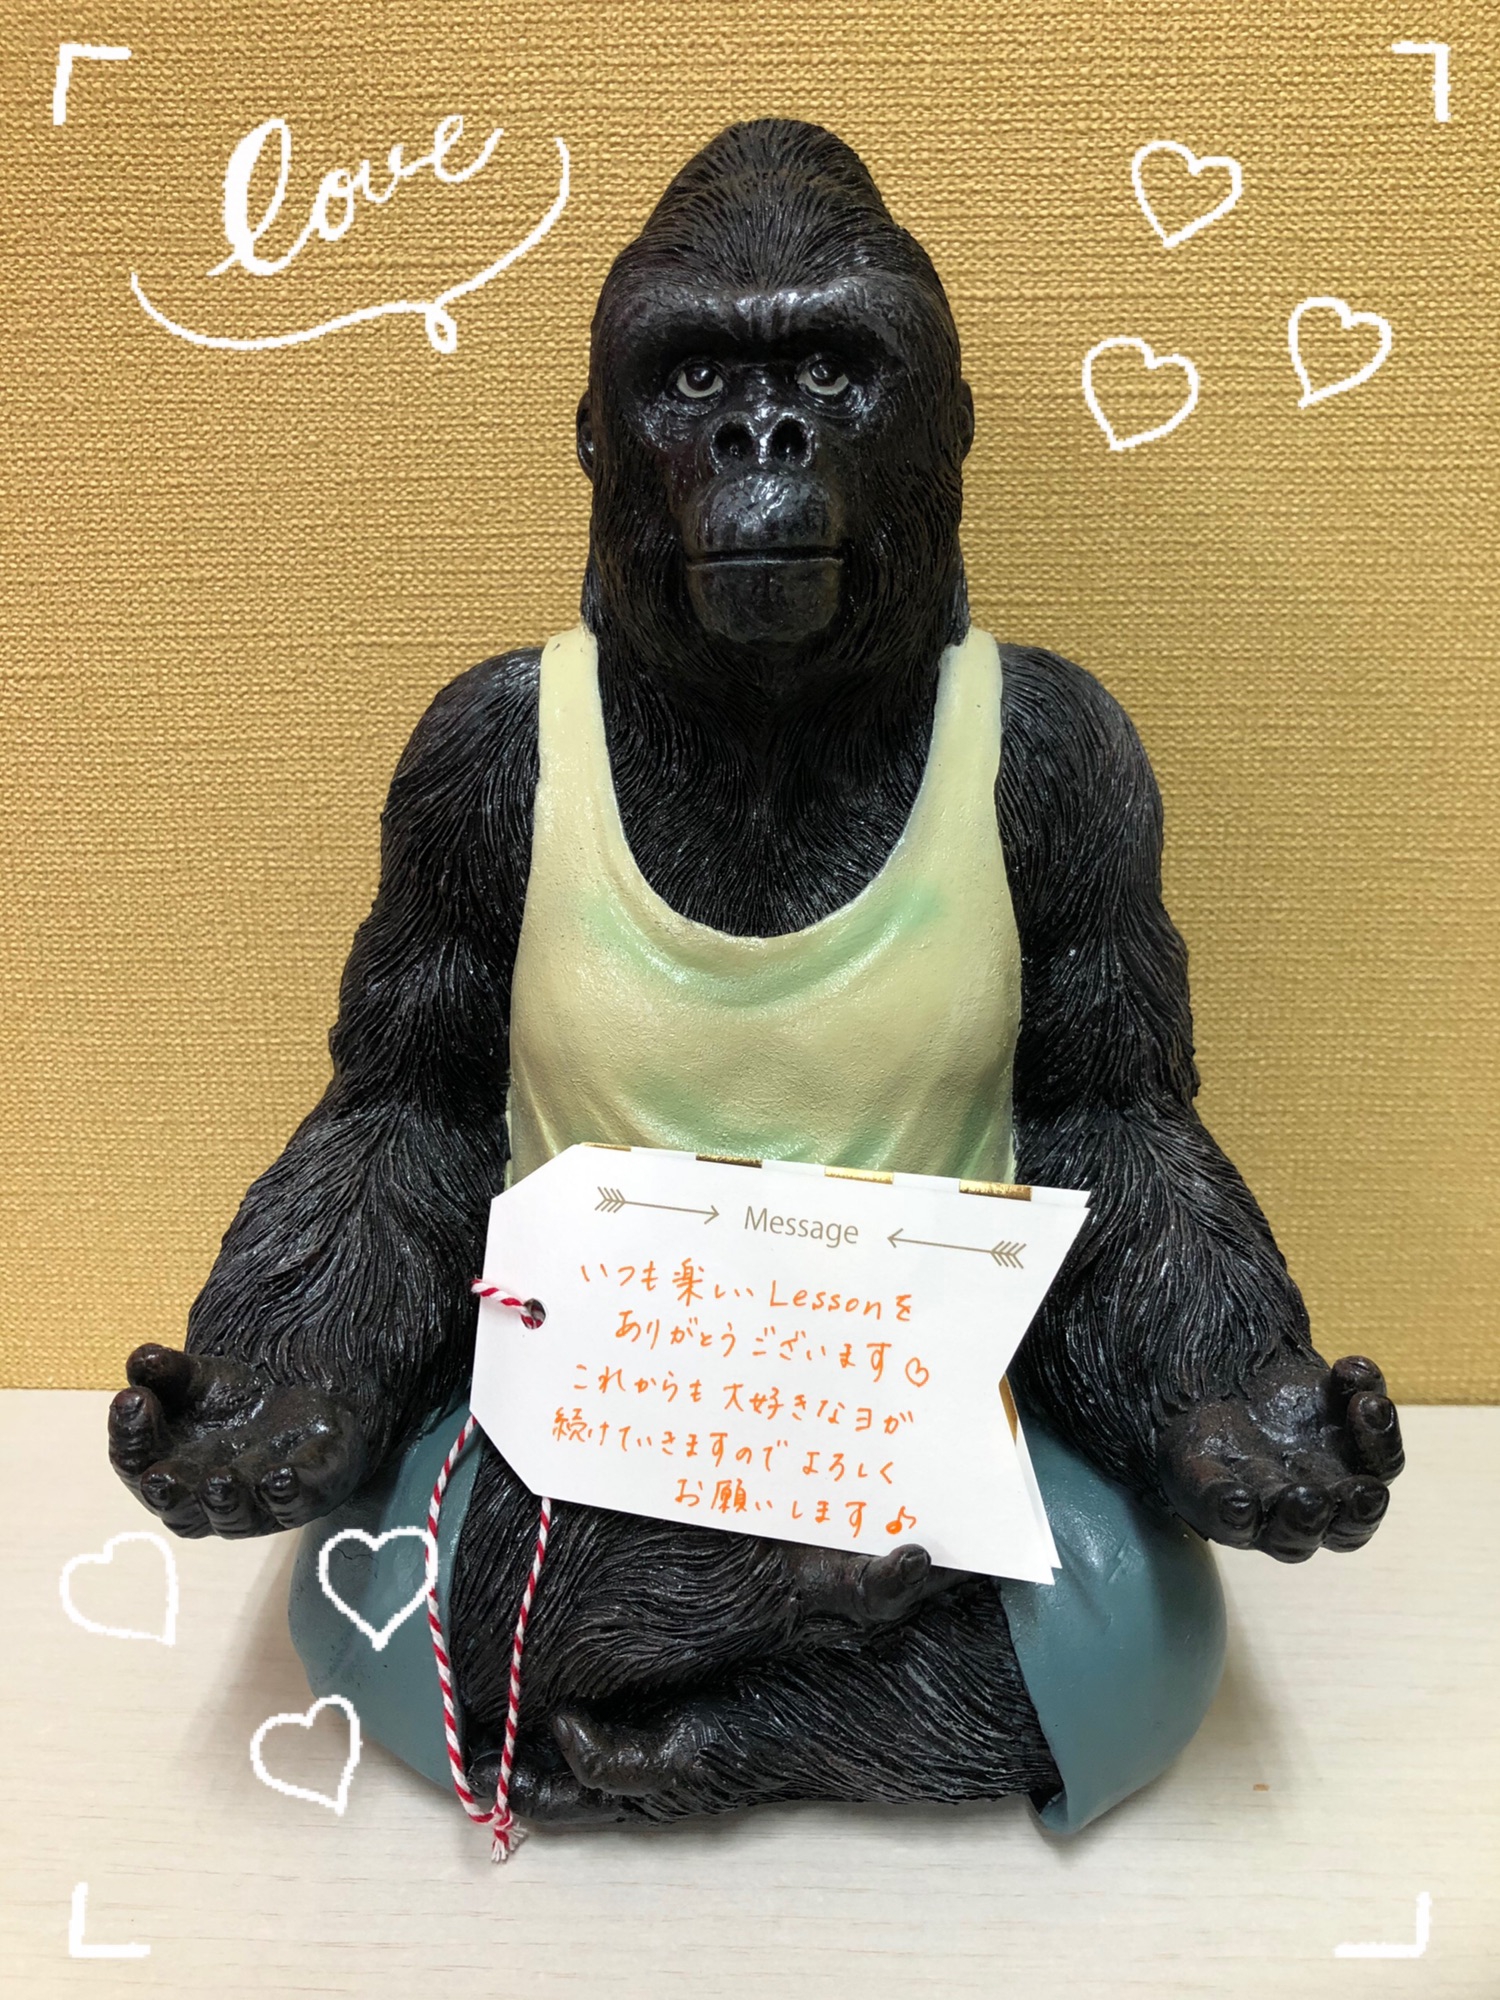 love
Message
いつも楽しい Lessonを
ありがとうございます♡
これからも大好きなヨガ
続けていきますのでよろしく
お願いします♪